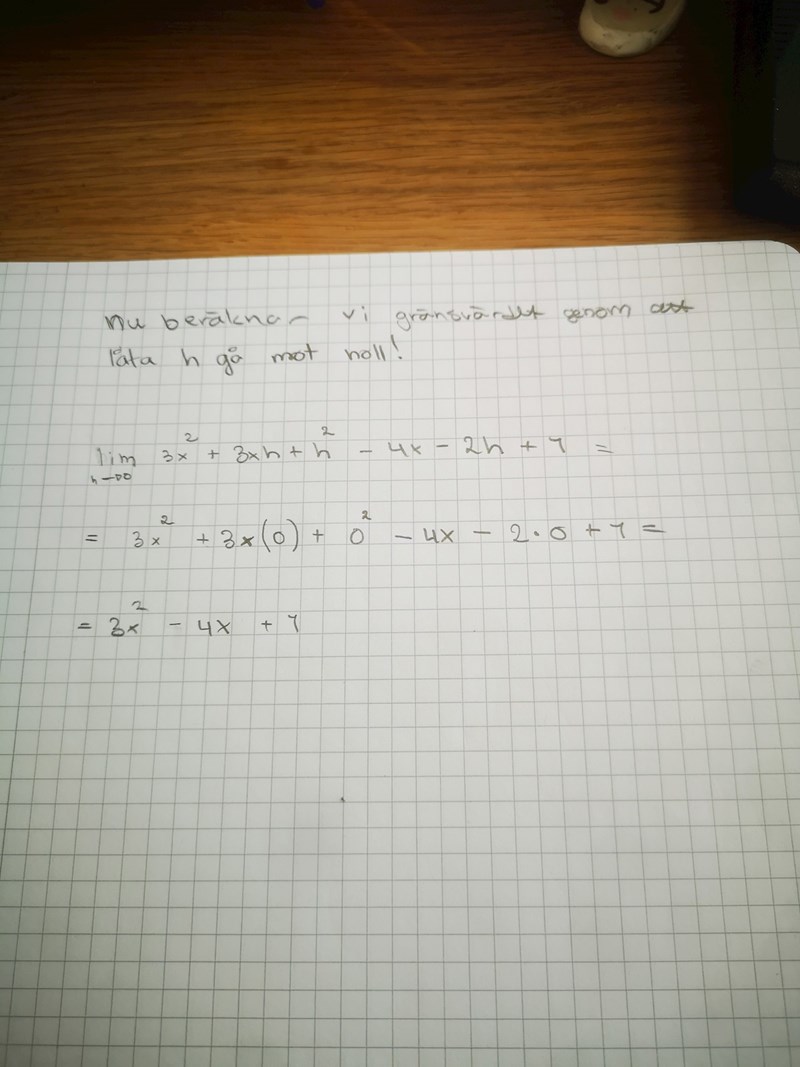 nu beräknar vi gränsvärdet genom att
låta h gå mot noll!
lim 3x² + 3xh + h² - 4x - 2h + 7 =
h→0
= 3x² + 3x(0) + 0² - 4x - 2·0 + 7 =
= 3x² - 4x + 7